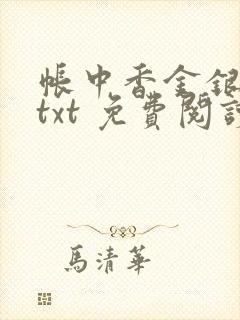 帳中香金銀
txt 免費閱讀
馬清華